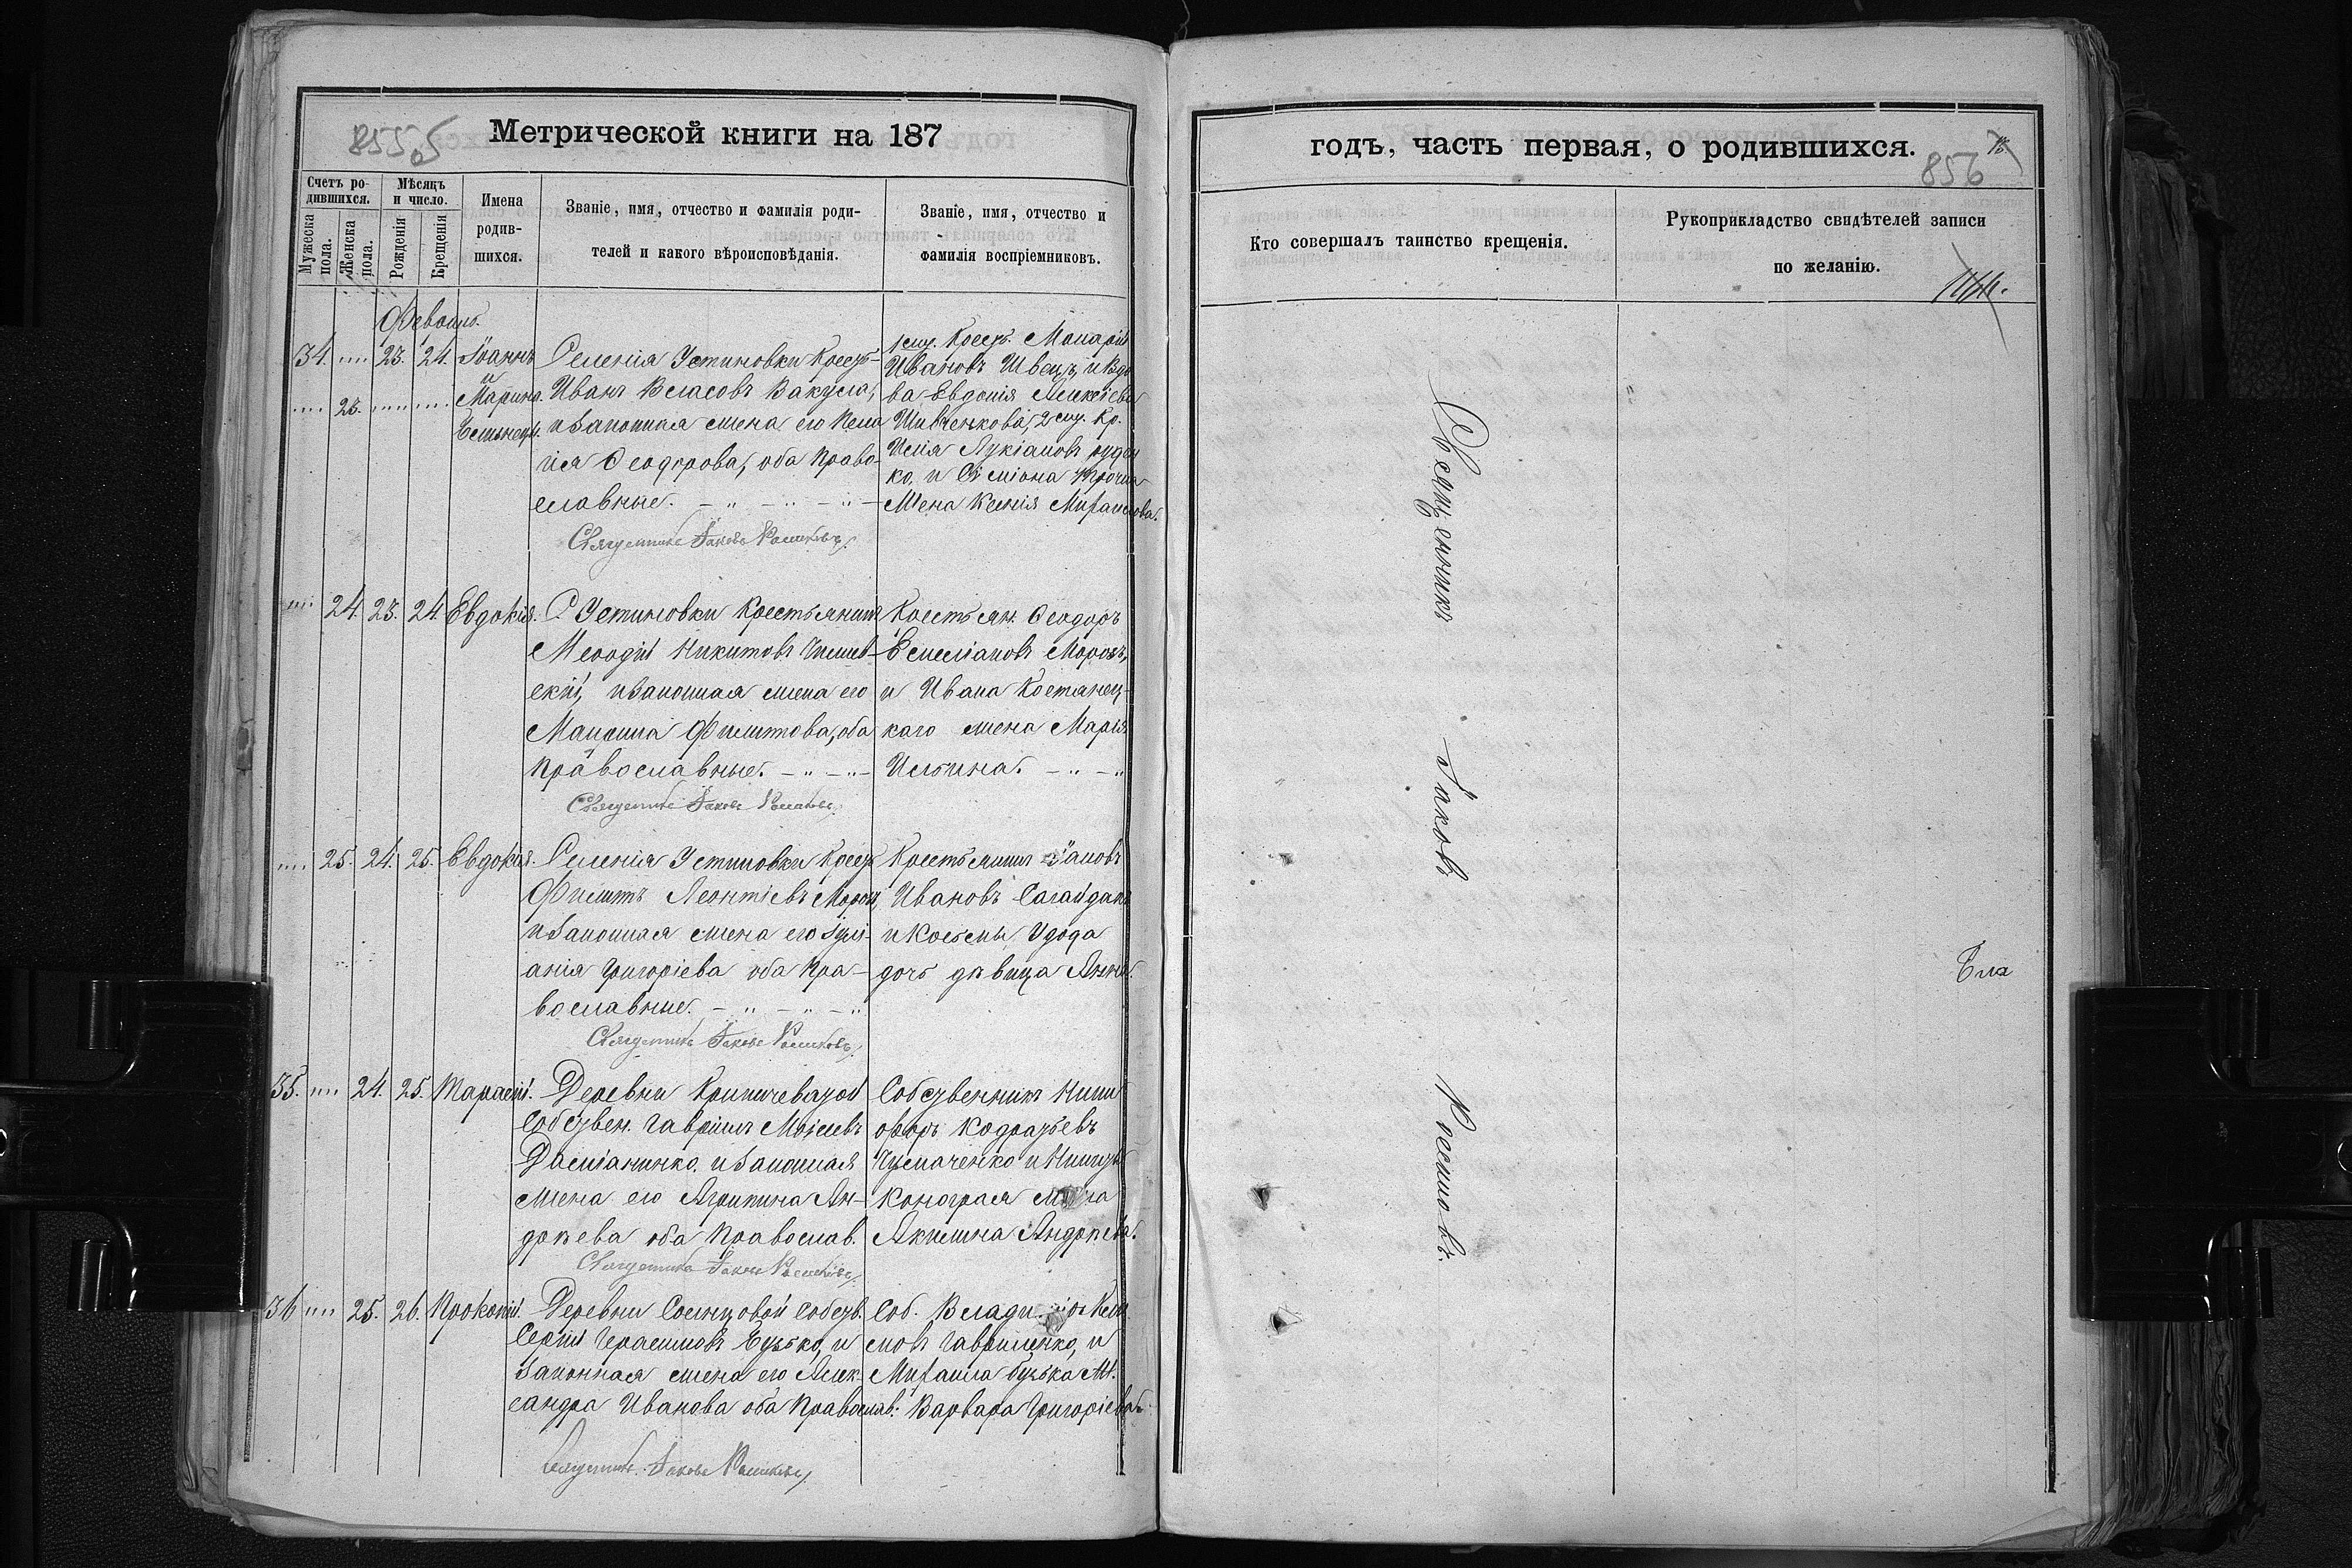 855
Метрической книги на 187
Счетъ ро-
дившихся.
Мѣсяцъ
и число.
Мужеска
пола.
Женска
пола.
Рожденія
Крещенія
Имена
родив-
шихся.
Званіе, имя, отчество и фамилія роди-
телей и какого вѣроисповѣданія.
Званіе, имя, отчество и
фамилія воспріемниковъ.
34. 23. 24. Іоаннъ
и
23. Марина
Близнецы.
Селенія Устиновки Крест-
Иванъ Власовъ Вакула,
и Законная жена его Пела
гія Ѳеодорова, оба Право-
славные.
Священникъ Іаковъ
Крест. Макарій
Ивановъ Швецъ, и Вдо
ва Евдокія Алексіева
Шевченкова, 2
Илія Лукіановъ
ко, и
жена Ксенія Михаилова.
24. 23. 24. Евдокія.
С. Устиновки Крестьянинъ
Меѳодій Никитовъ
скій, и Законная жена его
Филиптова, оба
Православные.
Священникъ Іаковъ
Крестьян. Ѳеодоръ
Емеліановъ Морозъ,
и Ивана Костянец-
каго жена Марія
Ильина.
25. 24. 25. Евдокія.
Селенія Устиновки Крест
Филиппъ Леонтіевъ Морозъ,
и Законная жена его Іулі-
анія Григоріева оба Пра-
вославные.
Священникъ Іаковъ
Крестьянинъ Іаковъ
Ивановъ Сагайдакъ
и Косьмы Удода
дочь дѣвица Анна.
35. 24. 25. Тарасій.
Деревни Криничеватой
Собствен. Гавріилъ Моісеевъ
Даміаненко. и Законная
жена его Агрипина Ан-
дрѣева оба Православ.
Священникъ Іаковъ
Собственникъ Ники
форъ Кодратьевъ
Чумаченко и Никиты
Конограя жена
Акилина Андрѣева.
36 25. 26. Прокопій.
Деревни собств.
Сергій Герасимовъ и
Законная жена его Алек-
сандра Иванова оба Православ.
Священникъ Іаковъ
Соб.
Гавриленко, и
Михаила Бузька ж.
Варвара Григоріева
годъ, часть первая, о родившихся.
856
Кто совершалъ таинство крещенія.
Рукоприкладство свидѣтелей записи
по желанію.
Священникъ Іаковъ